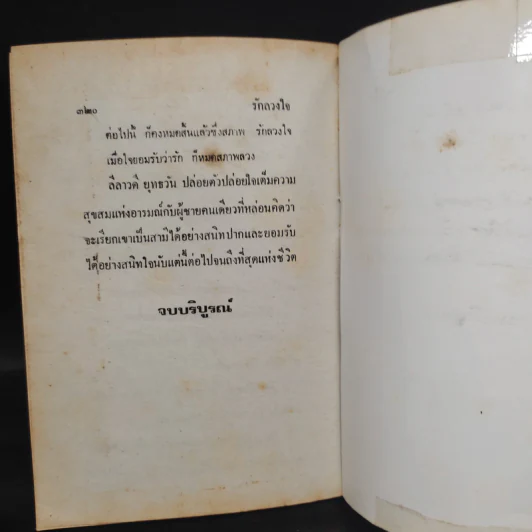 ๓๒๐ รักลวงใจ
ต่อไปนี้ ก็คงหมดสิ้นแล้วซึ่งสภาพ รักลวงใจ
เมื่อใจยอมรับว่ารัก ก็หมดสภาพลวง
ลีลาวดี ยุทธวัน ปล่อยตัวปล่อยใจเต็มความ
สุขสมแห่งอารมณ์กับผู้ชายคนเดียวที่หล่อนคิดว่า
จะเรียกเขาเป็นสามีได้อย่างสนิทปากและยอมรับ
ได้อย่างสนิทใจนับแต่นี้ต่อไปจนถึงที่สุดแห่งชีวิต
จบบริบูรณ์